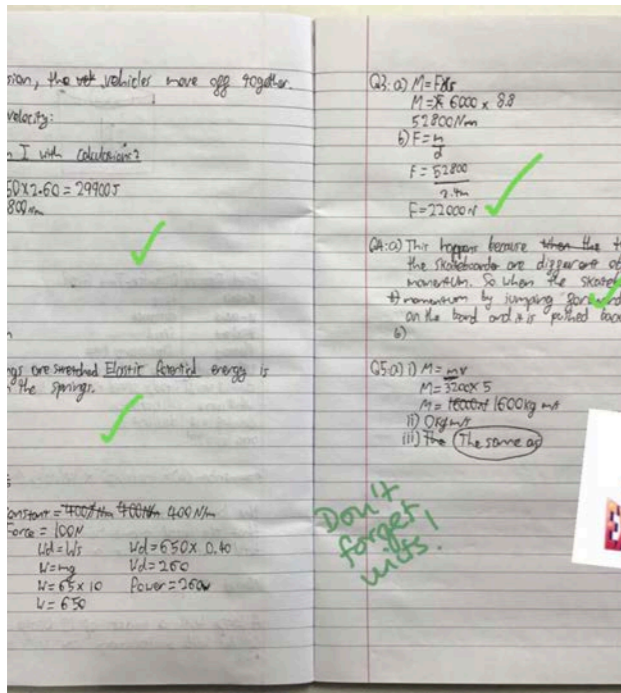 sion, the vehicles move off together.
velocity:
I with calculations?
50x2.60 = 29900J
800Nm
ngs are stretched Elastic Potential energy is
the springs.
Constant = 400N/m 400Nm 400 N/m
Force = 100N
Wd=Ws Wd=650x 0.40
W=mg Wd=260
W=65x10 Power=260w
W=650
Q3: a) M=Fxs
M= 6000 x 8.8
52800Nm
b) F=m
d
F= 52800
2.4m
F=22000N
Q4: a) This happens because when the
the skateboarder are different
momentum. So when the skate
momentum by jumping forward
on the board and it is pushed back
b)
Q5: a) i) M=mv
M=3200x5
M= 1600kg m/s
ii) 0kgm/s
iii) The The same as
Don't
forget
units!